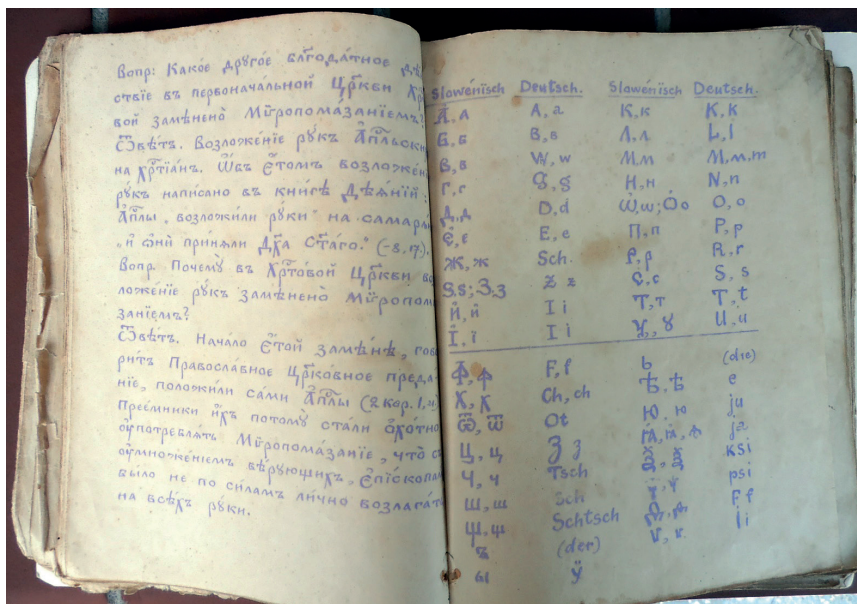 Вопр: Какóе другóе благодáтное дѣ́-
ствїе въ первоначáльной Цр҃кви Хрⷭ҇тó-
вой замѣненó Мѷропомáзанїемъ?
Ѿвѣ́тъ. Возложéнїе рýкъ А҆пⷭ҇льски
на Хрⷭ҇тїáнъ. Ѡ҆бъ є҆́томъ возложéн
рýкъ написано въ кни́гѣ Дѣѧнїй:
А҆пⷭ҇лы, возложили рýки "на самарѧ
"и҆ ѡ҆ни́ при́нѧли Дх҃а Ст҃áго." (-8, 17.).
Вопр. Почемꙋ̀ въ Хрⷭ҇тóвой Цр҃кви во
ложéнїе рýкъ замѣненó Мѷропом
занїемъ?
Ѿвѣ́тъ. Начáло є҆́той замѣ́нѣ, гов
ри́тъ Правослáвное Цр҃кóвное преда-
нїе, положи́ли сáми А҆пⷭ҇лы (2 кор. 1,
Преéмники и҆́хъ потомꙋ̀ стáли ѻ҆хóтно
ᲂу҆потреблѧть Мѷропомáзанїе, чтò с
ᲂу҆множéнїемъ вѣ́рующихъ, Є҆пі́скопам
было не по си́ламъ ли́чно возлагáт
на всѣ́хъ рýки.
Slowénïsch Deutsch. Slowénïsch Deutsch.
А҆, а A, a К, к K, k
Б, б B, b Л, л L, l
В, в W, w М, м M, м, m
Г, г G, g Н, н N, n
Д, д D, d Ѡ҆, ѡ; Ѻ о O, o
Є҆, є E, e П, п P, p
Ж, ж Sch Р, р R, r
Ѕ, ѕ; З, з Z z С, с S, s
И҆, и҆ I i Т, т T, t
І҆, ї I i Ꙋ, ꙋ U, u
Ф, ф F, f ь (die)
Х, х Ch, ch Ѣ, ѣ e
Ѿ, ѿ Ot Ю, ю ju
Ц, ц Z z Ꙗ, ꙗ, ѧ ja
Ч, ч Tsch Ѯ, ѯ ksi
Ш, ш Sch Ѱ, ѱ psi
Щ, щ Schtsch Ѳ, ѳ F f
ъ (der) Ѵ, ѵ I i
ы ÿ